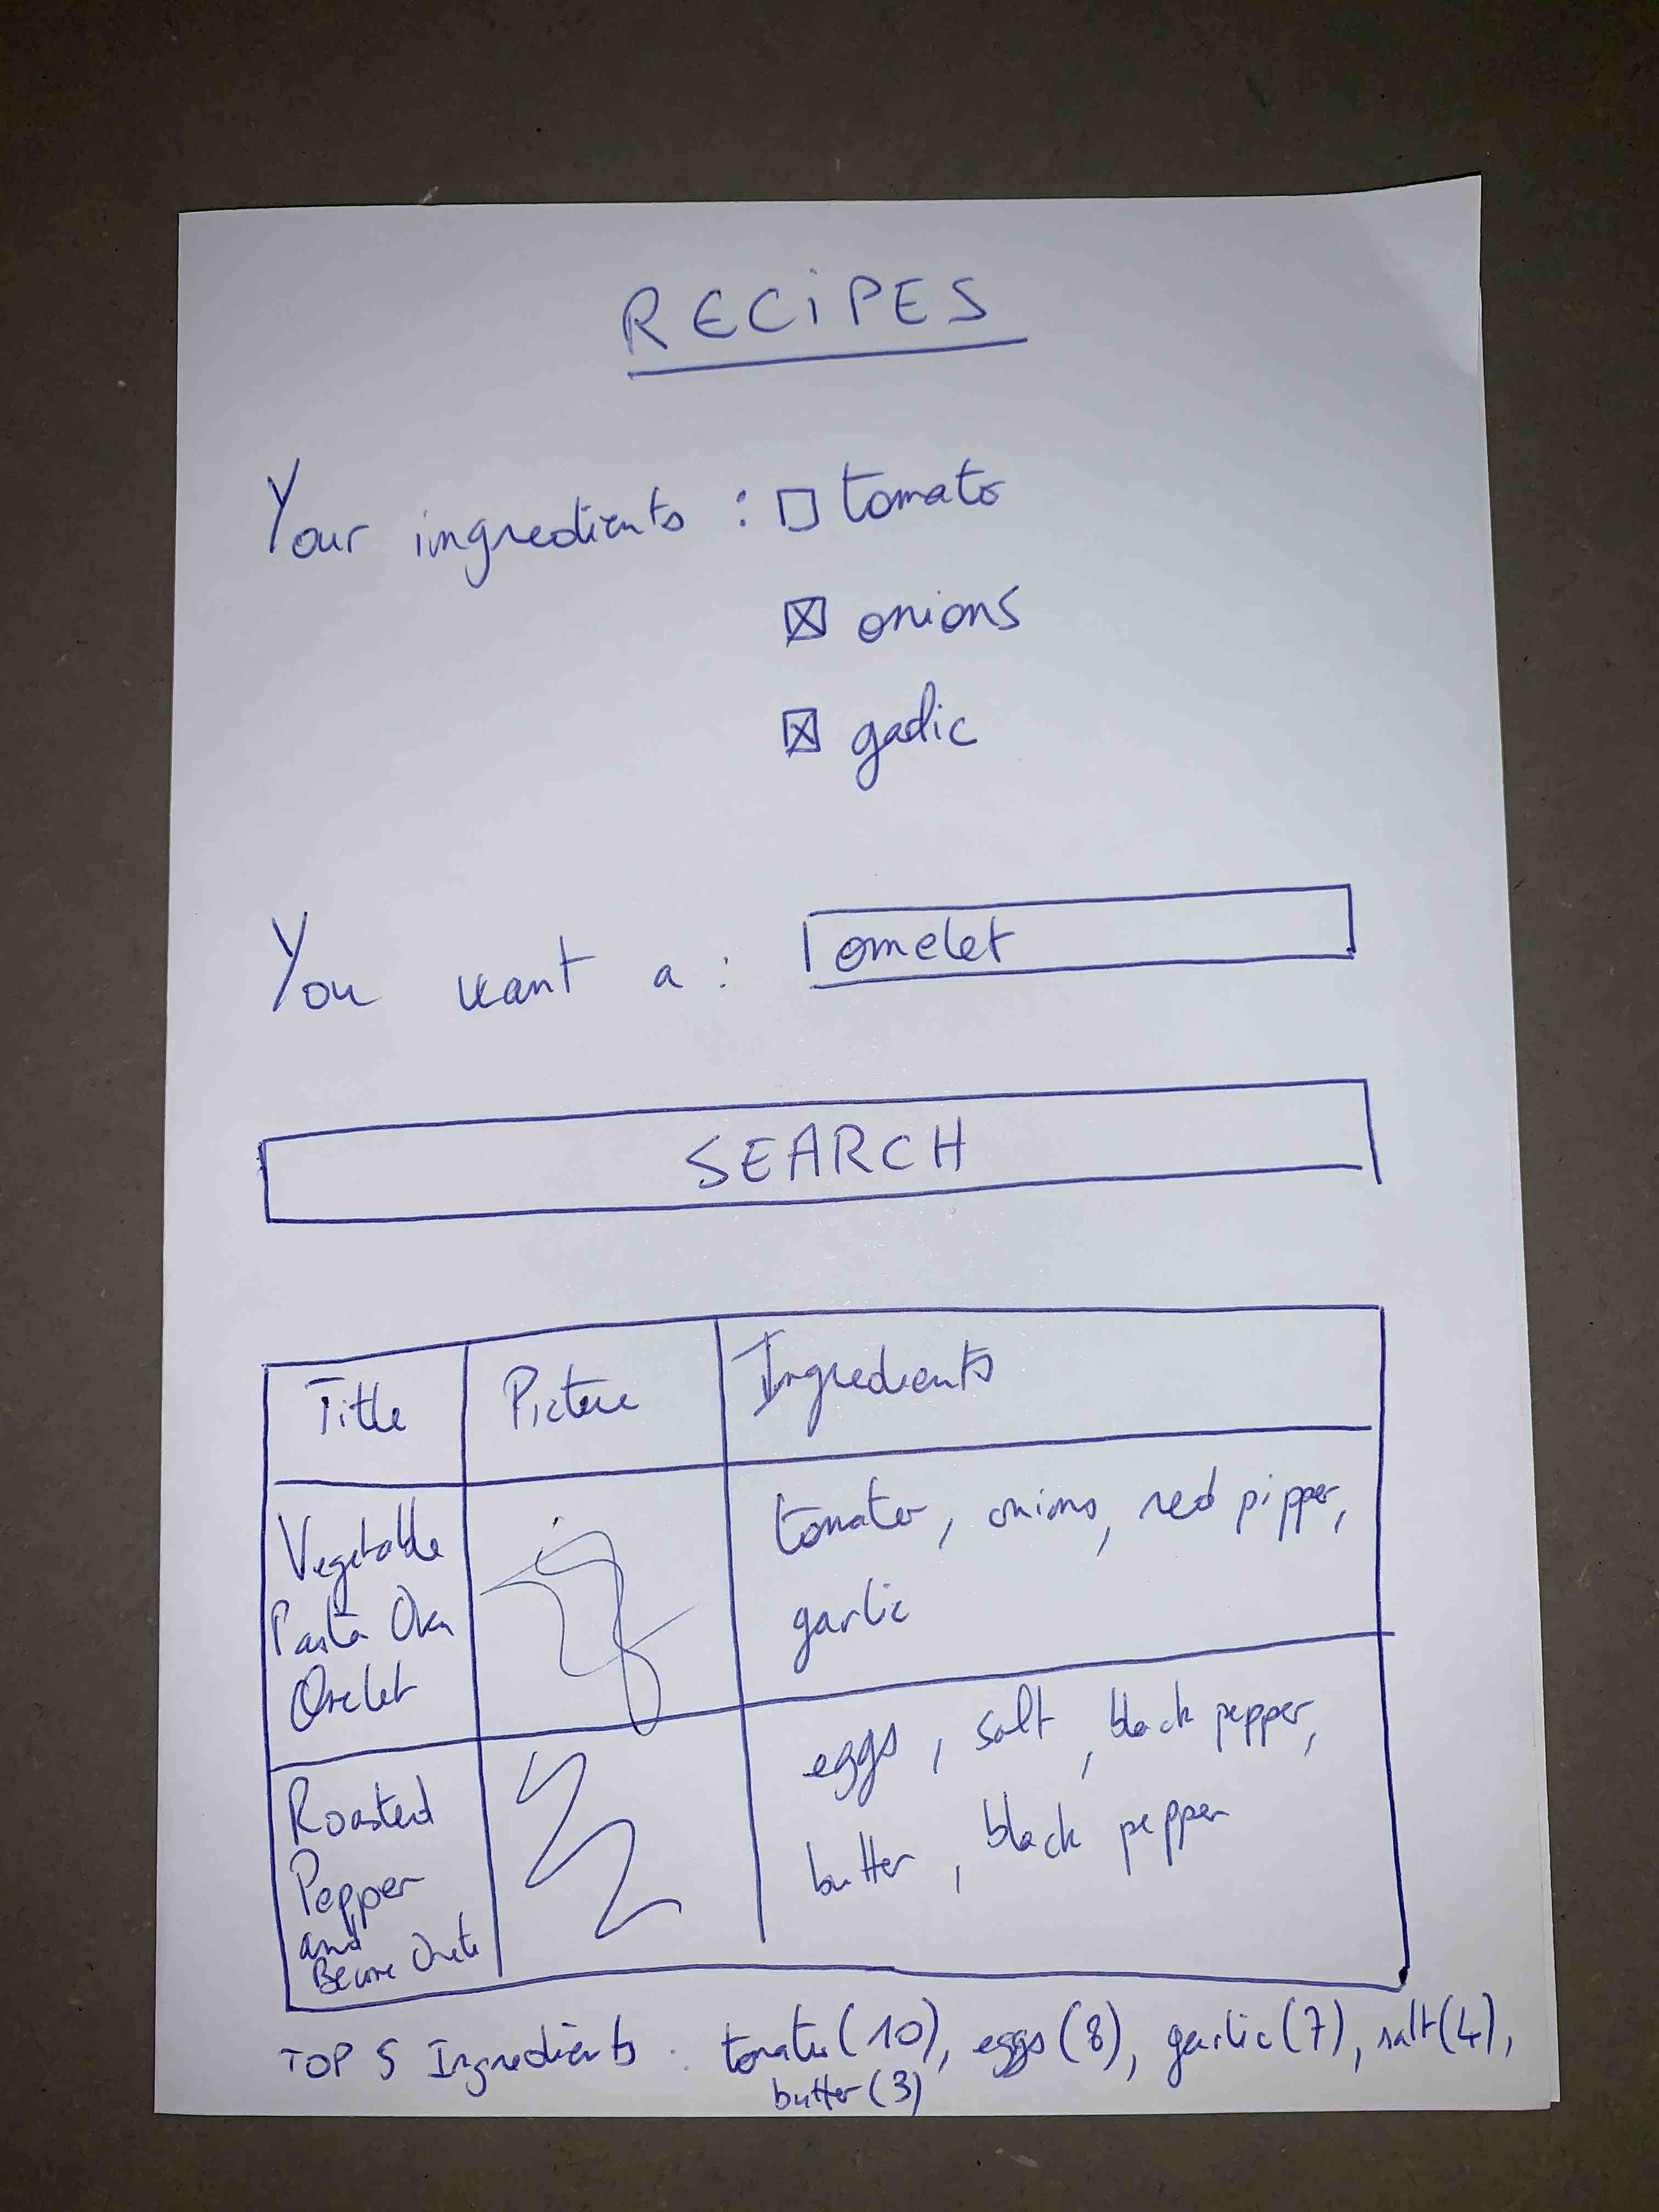 RECIPES
Your ingredients : tomato
onions
garlic
You want a : omelet
SEARCH
Title Picture Ingredients
Vegetable
Pasta Oven
Omelet
tomato, onions, red pipper,
garlic
Roasted
Pepper
and
eggs, salt, black pepper,
butter, black pepper
TOP 5 Ingredients : tomato (10), eggs (8), garlic (7), salt (4),
butter (3)